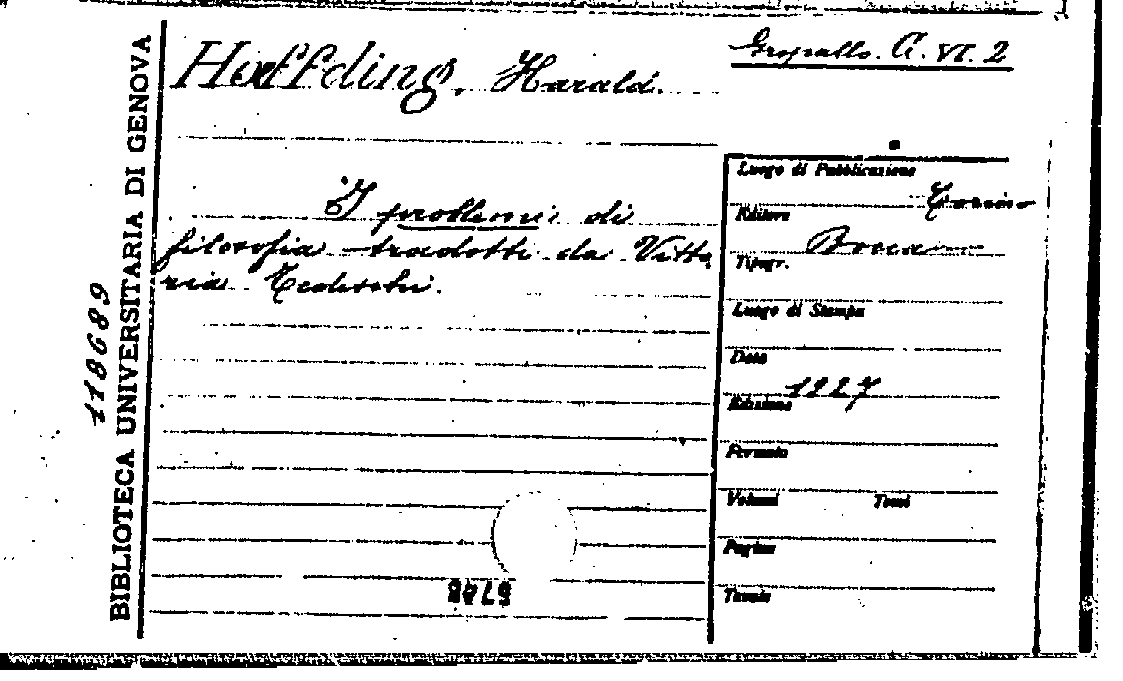 Gropallo. A. VI. 2
Hoeffding, Harald.
I problemi di
filosofia tradotti da Vitto
ria Tedeschi.
Luogo di Pubblicazione
Torino
Editore
Bocca
Tipogr.
Luogo di Stampa
Data
1927
Edizione
Formato
Volumi Tomi
Pagine
Tavole
BIBLIOTECA UNIVERSITARIA DI GENOVA
118689